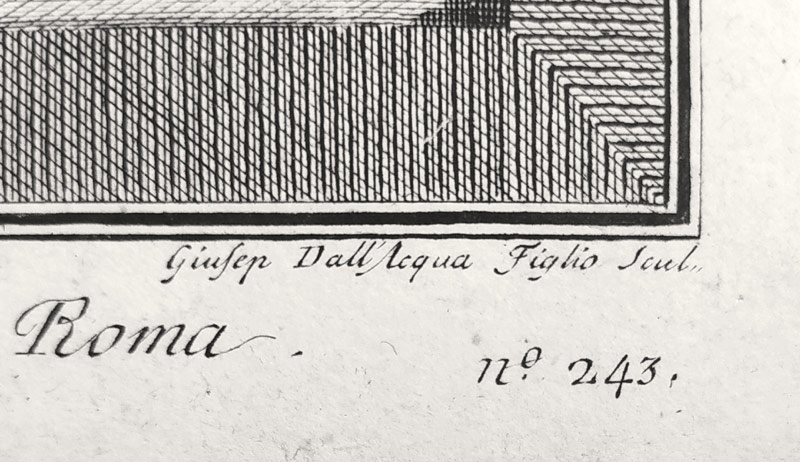 Giuſep Dall'Acqua Figlio Scul..
Roma .
nº 243.